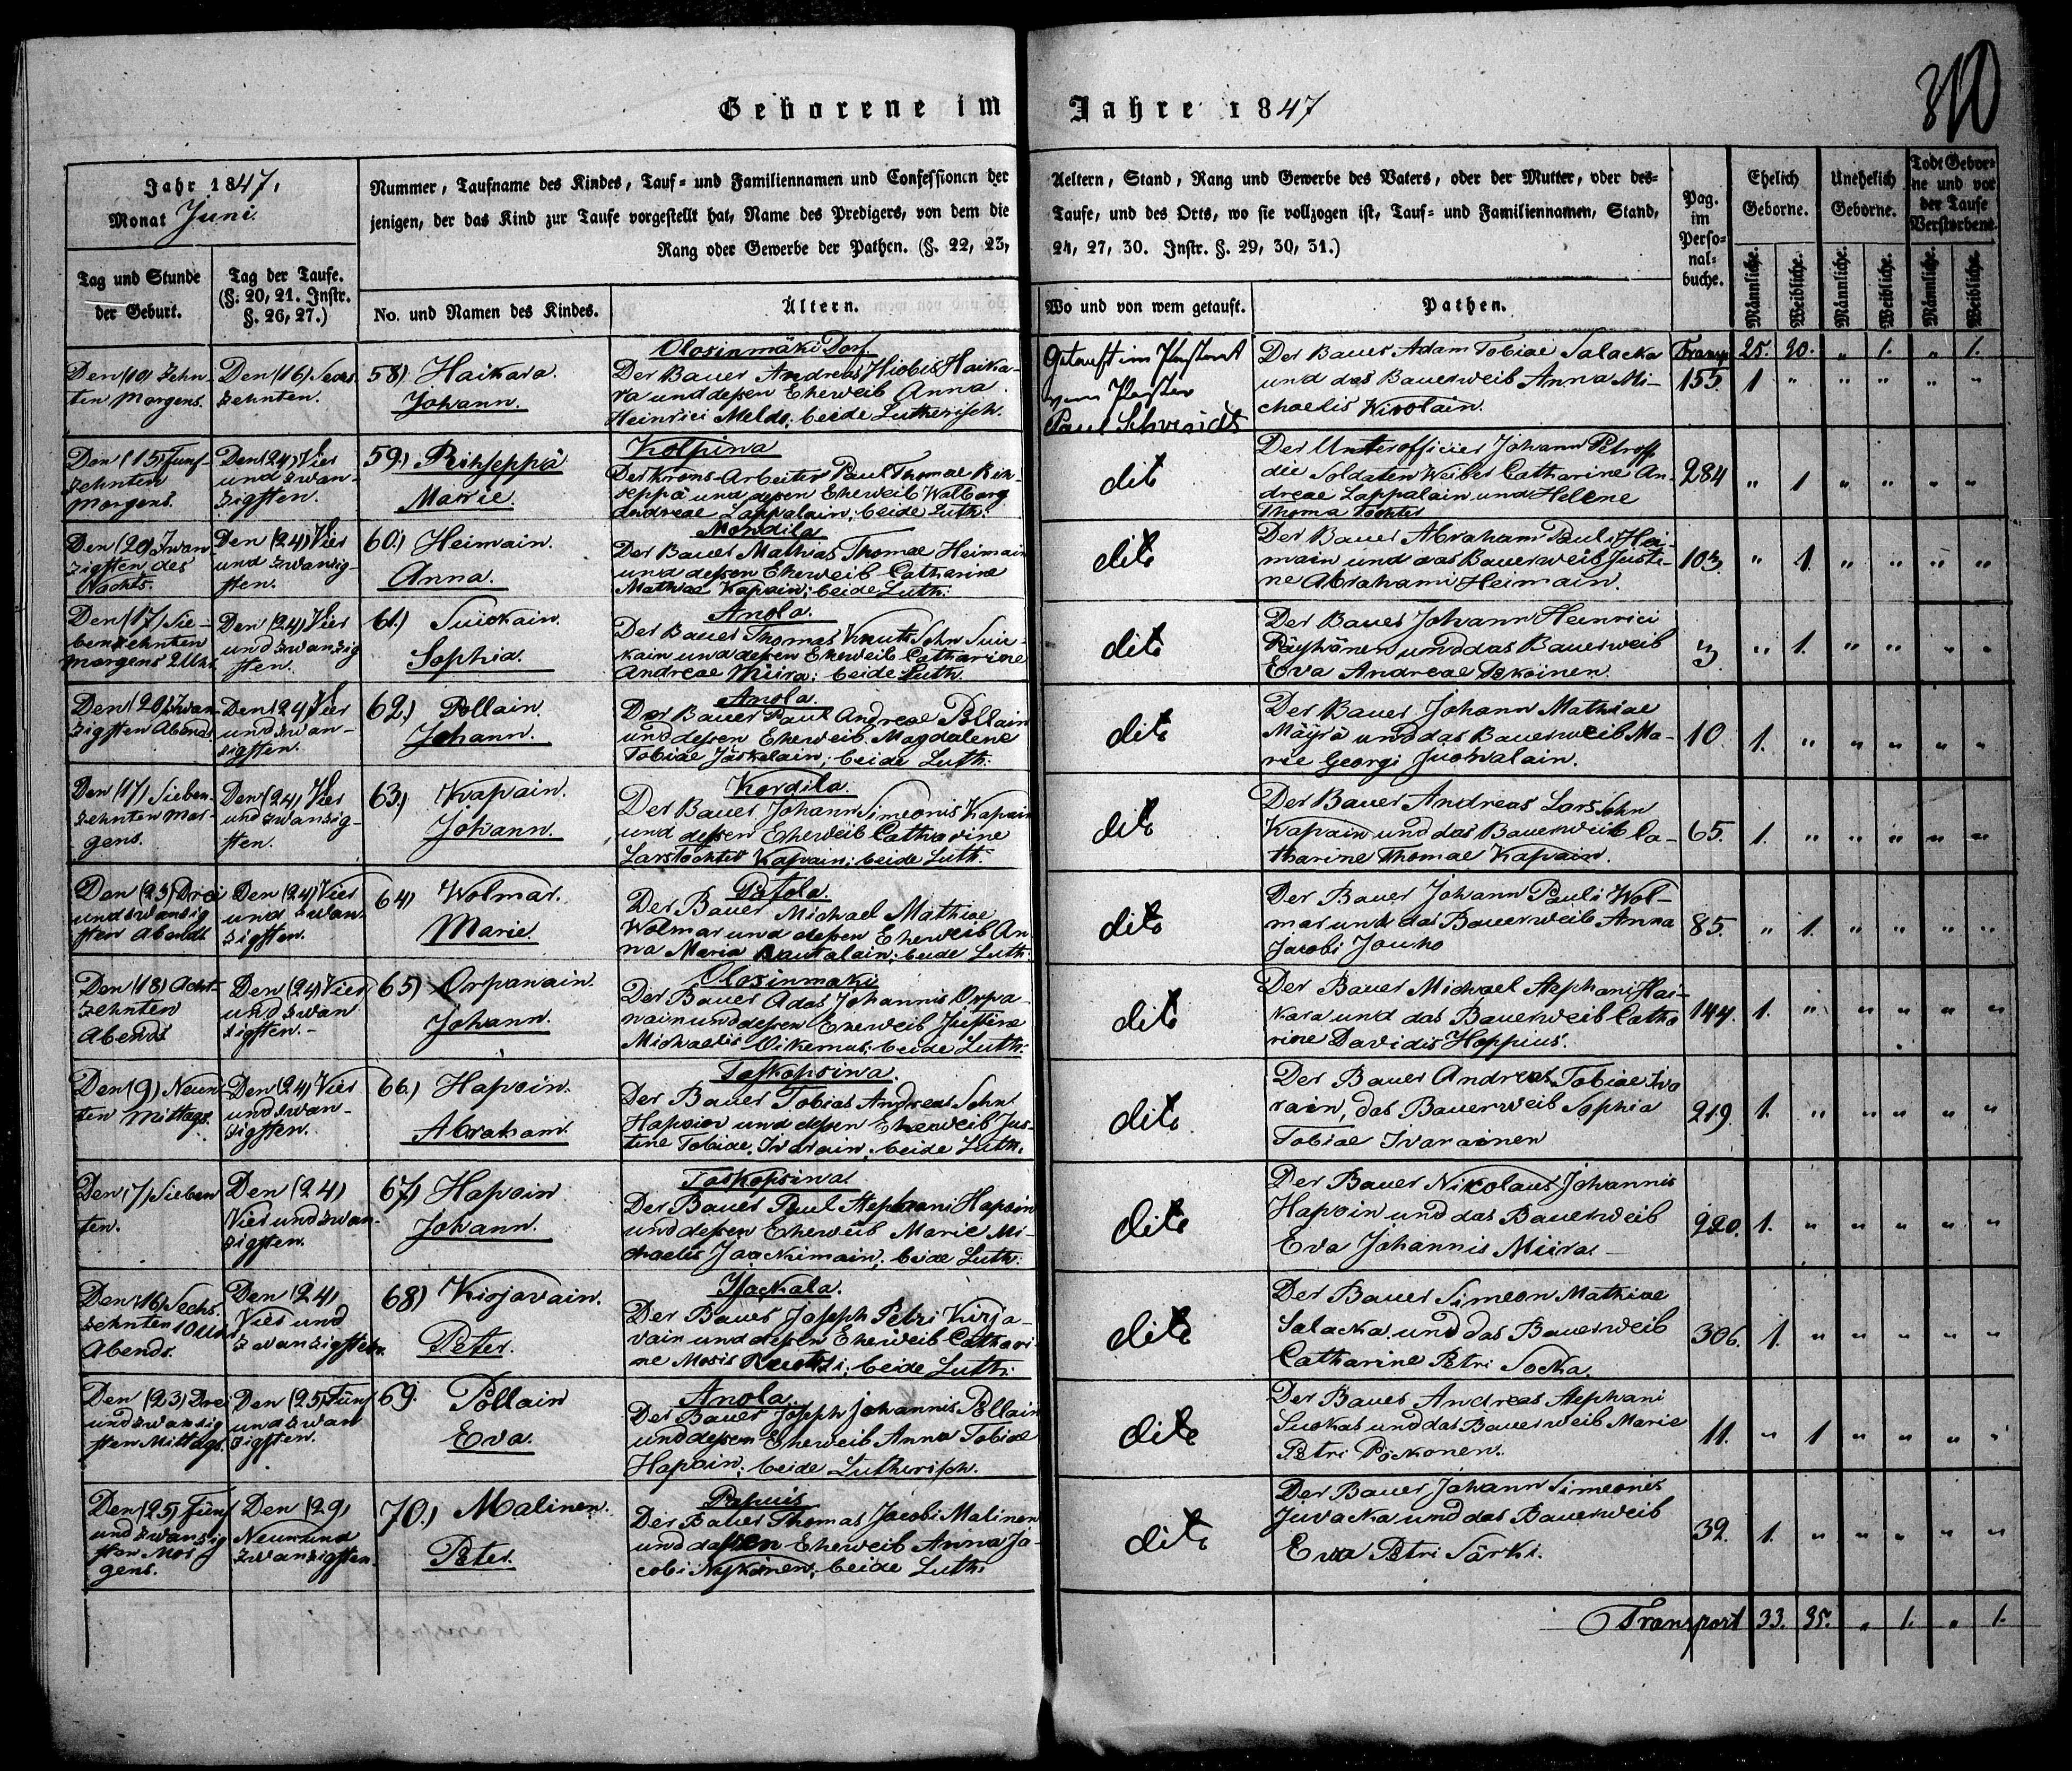 310
Geborene im Jahre 1847
Jahr 1847.
Monat Juni.
Nummer, Taufname des Kindes, Tauf= und Familiennamen und Confessionen der Aeltern, Stand, Rang und Gewerbe des Vaters, oder der Mutter, oder des=
jenigen, der das Kind zur Taufe vorgestellt hat, Name des Predigers, von dem die Taufe, und des Orts, wo sie vollzogen ist, Tauf= und Familiennamen, Stand,
Rang oder Gewerbe der Pathen. (§. 22, 23, 24, 27, 30. Instr. §. 29, 30, 31.)
Pag.
im
Perso=
nal=
buche.
Ehelich
Geborne.
Unehelich
Geborne.
Todt Gebor=
ne und vor
der Taufe
Verstorbene.
Tag und Stunde
der Geburt.
Tag der Taufe.
(§. 20, 21. Instr.
§. 26, 27.)
No. und Namen des Kindes.
Ältern.
Wo und von wem getauft.
Pathen.
Männliche. Weibliche. Männliche. Weibliche. Männliche. Weibliche.
Transp 25. 20. " 1. " 1.
Den (10) Zehn-
ten Morgens.
Den (16) Sechs
zehnten.
58) Haikara.
Johann.
Olosinmäki Dorf
Der Bauer Andreas Hiobis Haika-
ra und deßen Eheweib Anna
Heinrici Melds; beide Lutherisch.
Getauft im Pastorat
vom Pastor
Paul Schvindt
Der Bauer Adam Tobiae Salacka
und das Bauerweib Anna Mi-
chaelis Kirolain.
155. 1 " " " " "
Den (15) Funf-
zehnten
Morgens.
Den (24) Vier
und zwan-
zigsten.
59.) Rihseppä
Marie.
Kolpina
Der Krons-Arbeiter Paul Thomae Rih-
seppä und deßen Eheweib Walborg
Andreae Lappalain; beide Luth.
dito
Der Unterofficier Johann Petroff
die Soldaten Weiber Catharine An-
dreae Lappalain und Helene
Thoma Tochter
284 " 1 " " " "
Den (20) Zwan
zigsten des
Nachts.
Den (24) Vier
und zwanzig-
sten.
60.) Heimain.
Anna.
Mondila
Der Bauer Mathias Thomae Heimain
und deßen Eheweib Catharina
Mathiae Kapain; beide Luth:
dito
Der Bauer Abraham Pauli Hei-
main und das Bauerweib Justi-
ne Abrahami Heimain.
103. " 1. " " " "
Den (17) Sie-
benzehnten
Morgens 2 Uhr.
Den (24) Vier
und zwanzig
sten.
61.) Suickain.
Sophia.
Anola.
Der Bauer Thomas Knuts Sohn Suic-
kain und deßen Eheweib Catharine
Andreae Miira; beide Luth.
dito
Der Bauer Johann Heinrici
Räyhönen und das Bauerweib
Eva Andreae
3 " 1. " " " "
Den (20) Zwan-
zigsten Abends.
Den (24) Vier
und zwan-
zigsten.
62.) Pollain.
Johann.
Anola.
Der Bauer Paul Andreae Pollain
und deßen Eheweib Magdalene
Tobiae Jäskelain; beide Luth:
dito
Der Bauer Johann Mathiae
Mäyrä und das Bauerweib Ma-
rie Georgi Juowalain.
10. 1. " " " " "
Den (17) Sieben-
zehnten Mor-
gens.
Den (24) Vier
und zwanzig-
sten.
63.) Kapain.
Johann.
Kordila.
Der Bauer Johann Simeonis Kapain
und deßen Eheweib Catharine
Lars Tochter Kapain; beide Luth.
dito
Der Bauer Andreas Lars Sohn
Kapain und das Bauerweib Ca-
tharine Thomae Kapain.
65. 1. " " " " "
Den (23) Drei
und zwanzig
sten Abends
Den (24) Vier
und zwan-
zigsten.
64) Wolmar.
Marie.
Patola.
Der Bauer Michael Mathiae
Wolmar und deßen Eheweib An
na Maria Rautalain; beide Luth.
dito
Der Bauer Johann Pauli Wol-
mar und das Bauerweib Anna
Jacobi Jouho
85. " 1. " " " "
Den (18) Acht-
zehnten
Abends
Den (24) Vier
und zwan
zigsten.-
65) Orpanain.
Johann.
Olosinmaki
Der Bauer Adas Johannis Orpa-
nain und deßen Eheweib Justine
Michaelis Oikemus; beide Luth:
dito
Der Bauer Michael Stephani Hai-
kara und das Bauerweib Catha
rine Davidis Hoppius.
144. 1. " " " " "
Den (9) Neun-
ten Mittags.
Den (24) Vier
und zwan-
zigsten.
66.) Hapoin.
Abraham.
Toskopsina.
Der Bauer Tobias Andreas Sohn
Hapoin und deßen Eheweib Jus-
tine Tobiae Ivarain; beide Luth.
dito
Der Bauer Andreas Tobiae Iva
rain, das Bauerweib Sophia
Tobiae Ivarainen
219. 1. " " " " "
Den (7) Sieben
ten.
Den (24)
Vier und zwan-
zigsten.
67) Hapoin
Johann.
Toskopsina
Der Bauer Paul Stephani Hapoin
und deßen Eheweib Marie Mi-
chaelis Jaackimain; beide Luth:
dito
Der Bauer Nicolaus Johannis
Hapoin und das Bauerweib
Eva Johannis Miira
220. 1. " " " " "
Den (16) Sechs-
zehnten 10 Uhr
Abends.
Den (24)
Vier und
zwanzigsten.
68) Kirjavain.
Peter.
Isackala.
Der Bauer Joseph Petri Kirja-
vain und deßen Eheweib Cathari-
ne Mosis; beide Luth:
dito
Der Bauer Simeon Mathiae
Salacka und das Bauerweib
Catharine Petri Socka.
306. 1. " " " " "
Den (23) Drei
und zwanzig
sten Mittags.
Den (25) Fünf
und zwan
zigsten.
69. Pöllain
Eva.
Anola.
Der Bauer Joseph Johannis Pöllain
und deßen Eheweib Anna Tobiae
Hapoin; beide Lutherisch.
dito
Der Bauer Andreas Stephani
Luckas und das Bauerweib Marie
Petri Pöckonen.
11. " 1 " " " "
Den (25) Fünf
und zwanzig
sten Mor
gens.
Den (29)
Neunund
zwanzigsten.
70.) Malinen.
Peter.
Papuis
Der Bauer Thomas Jacobi Malinen
und deßen Eheweib Anna Ja-
cobi Nyckänen; beide Luth:
dito
Der Bauer Johann Simeonis
Juvacka und das Bauerweib
Eva Petri Särki.
39. 1. " " " " "
Transport 33. 25. " 1. " 1.